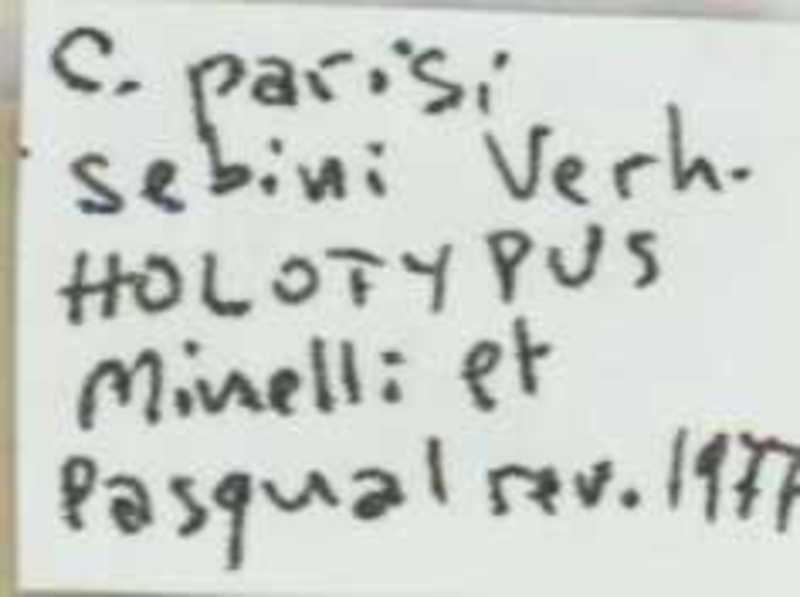 C. parisi
sebini Verh.
HOLOTYPUS
Minelli et
Pasqual rev. 1977